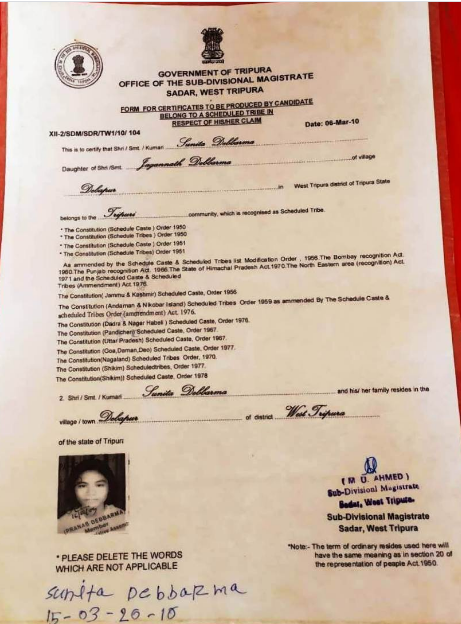 GOVERNMENT OF TRIPURA
OFFICE OF THE SUB-DIVISIONAL MAGISTRATE
SADAR, WEST TRIPURA
FORM FOR CERTIFICATES TO BE PRODUCED BY CANDIDATE
BELONG TO A SCHEDULED TRIBE IN
RESPECT OF HIS/HER CLAIM
XII-2/SDM/SDR/TW1/10/ 104
Date: 06-Mar-10
This is to certify that Shri / Smt. / Kumari Sunita Debbarma
Daughter of Shri /Smt. Jagannath Debbarma of village
Debapur in West Tripura district of Tripura State
belongs to the Tripuri community, which is recognised as Scheduled Tribe.
* The Constitution (Schedule Caste ) Order 1950
* The Constitution (Schedule Tribes ) Order 1950
* The Constitution (Schedule Caste ) Order 1951
* The Constitution (Schedule Tribes) Order 1951
As ammended by the Schedule Caste & Scheduled Tribes list Modification Order , 1956.The Bombay recognition Act.
1960.The Punjab recognition Act. 1966.The State of Himachal Pradesh Act,1970.The North Eastern area (recognition) Act.
1971 and the Scheduled Caste & Scheduled
Tribes (Ammendment) Act.1976.
The Constitution( Jammu & Kashmir) Scheduled Caste, Order 1956
The Constitution (Andaman & Nikobar Island) Scheduled Tribes Order 1959 as ammended By The Schedule Caste &
scheduled Tribes Order (amendment) Act, 1976.
The Constitution (Dadra & Nagar Habeli ) Scheduled Caste, Order 1976.
The Constitution (Pandicheri) Scheduled Caste, Order 1967.
The Constitution (Uttar Pradesh) Scheduled Caste, Order 1967.
The Constitution (Goa,Deman,Deo) Scheduled Caste, Order 1977.
The Constitution(Nagaland) Scheduled Tribes Order, 1970.
The Constitution (Shikim) Scheduledtribes, Order 1977.
The Constitution(Shikim)) Scheduled Caste, Order 1978
2. Shri / Smt. / Kumari Sunita Debbarma and his/ her family resides in the
village / town Debapur of district West Tripura
of the state of Tripuri
(PRANAB DEBBARMA)
Member
( M U. AHMED )
Sub-Divisionl Magistrate
Sadar, West Tripura.
Sub-Divisional Magistrate
Sadar, West Tripura
* PLEASE DELETE THE WORDS
WHICH ARE NOT APPLICABLE
*Note:- The term of ordinary resides used here will
have the same meaning as in section 20 of
the representation of people Act.1950.
sunita Debbarma
15-03-20-10